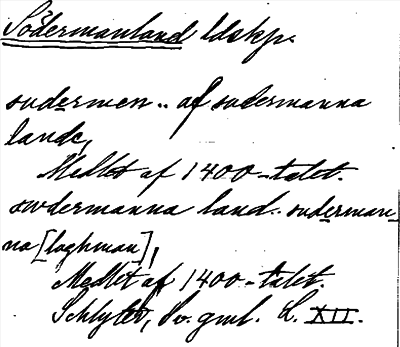 Södermanland ldskp.
sudermen .. af sudermanna
lande,
Medlet af 1400-talet.
swdermanna land.. suderman-
na [laghman],
Medlet af 1400-talet.
Schlyter, Sv. gml. L. XII.